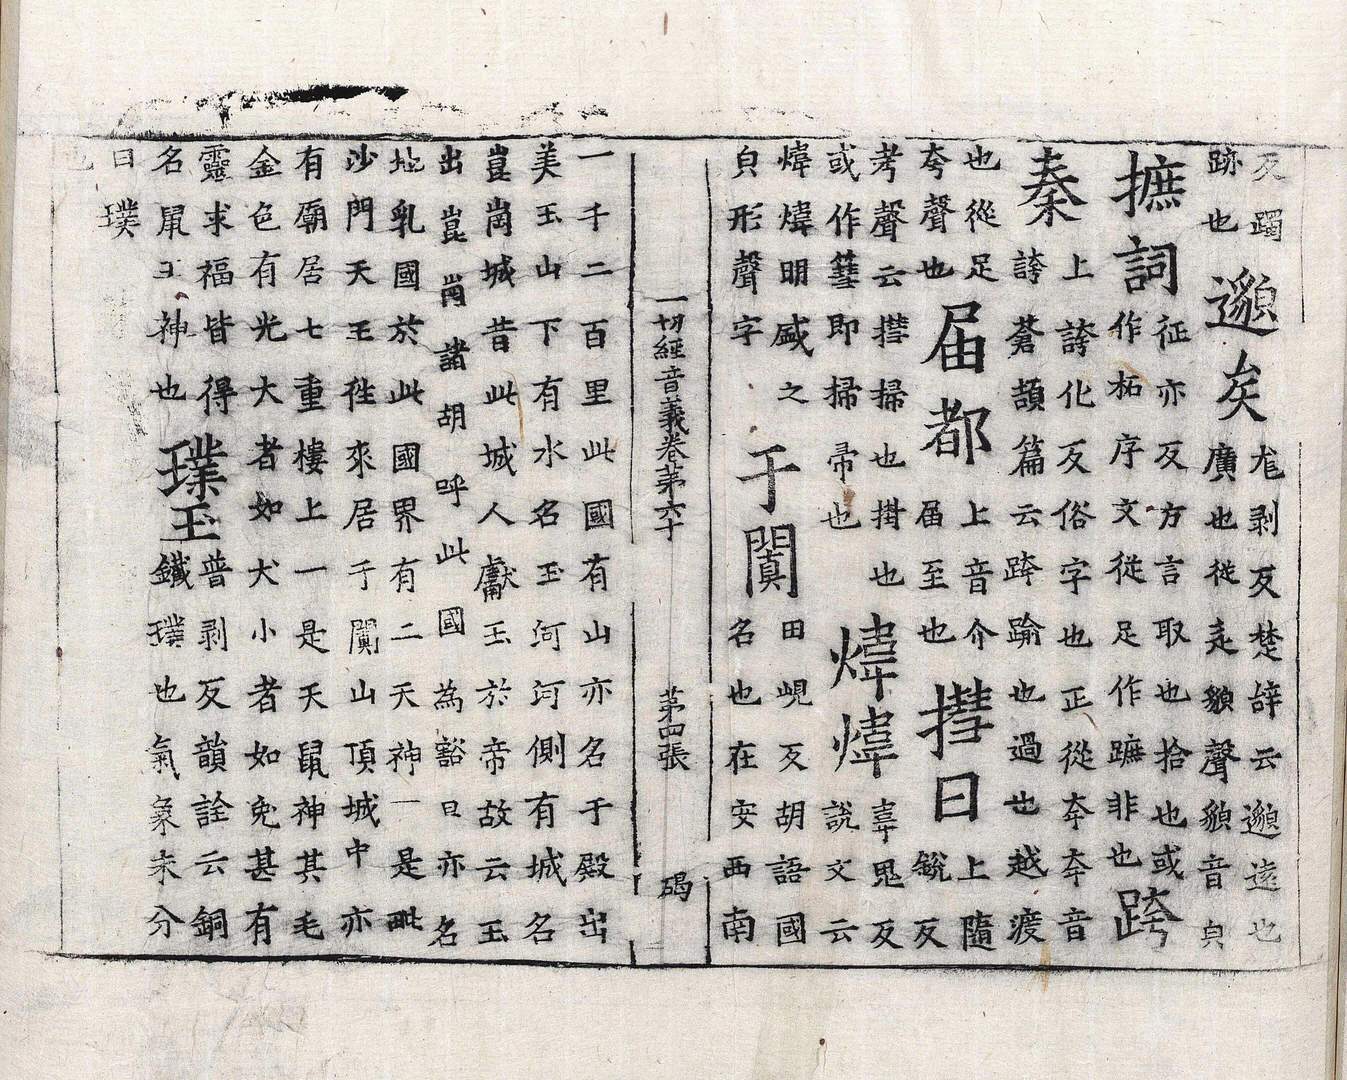 反躅跡也邈矣尨剥反楚辝云邈逺也廣也從辵䫉聲䫉音皃
摭詞征亦反方言取也拾也或作柘序文從足作蹠非也跨
秦上誇化反俗字也正從夸夸音誇蒼頡篇云跨踰也過也越渡
也從足夸聲也届都上音介届至也㨹日上隨銳反
考聲云㨹掃也掛也或作篲即掃帚也煒煒韋鬼反說文云
煒煒明盛之皃形聲字于闐田峴反胡語國名也在安西南
一切經音義卷第六十 第四張 碣
一千二百里此國有山亦名于殿出
美玉山下有水名玉河河側有城名
崑崗城昔此城人獻玉於帝故云玉
出崑崗諸胡呼此國為豁旦亦名
地乳國於此國界有二天神一是毗
沙門天王往來居于闐山頂城中亦
有廟居七重樓上一是天鼠神其毛
金色有光大者如犬小者如兔甚有
靈求福皆得名鼠王神也璞玉普剥反韻詮云銅鐵璞也氣象未分
曰璞也